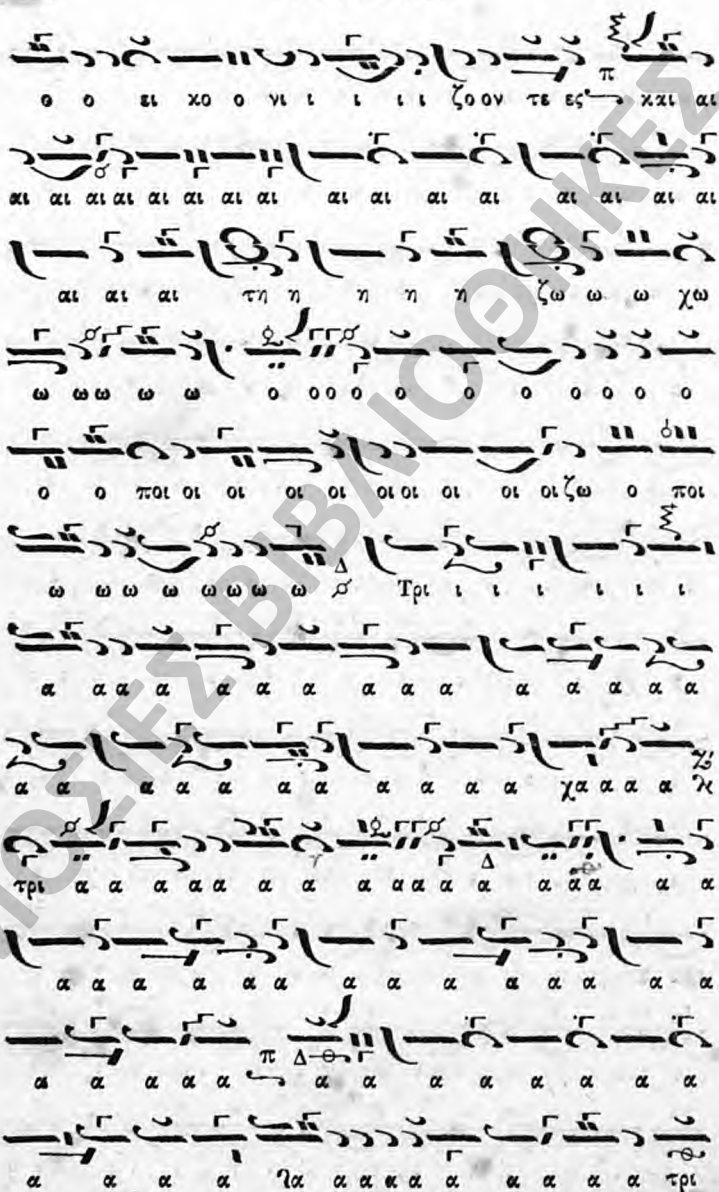 ο ο ει κο ο νι ι ι ι ι ζο ον τε ες π και αι
αι αι αι αι αι αι αι αι αι αι αι αι αι αι
αι αι αι τη η η η η ζω ω ω χω
ω ω ω ω ω ο ο ο ο ο ο ο ο ο ο ο
ο ο ποι οι οι οι οι οι οι οι οι οι ζω ο ποι
ω ω ω ω ω ω ω ω Δ Τρι ι ι ι ι ι ι
α α α α α α α α α α α α α α α
α α α α α α α α α α α χα α α α
τρι α α α α α α α α α α α α Δ α α α α α
α α α α α α α α α α α α
α α α α α π Δ α α α α α α α α
α α α α λα α α α α α α α α α τρι
ΒΙΒΛΙΟΘΗΚΕΣ